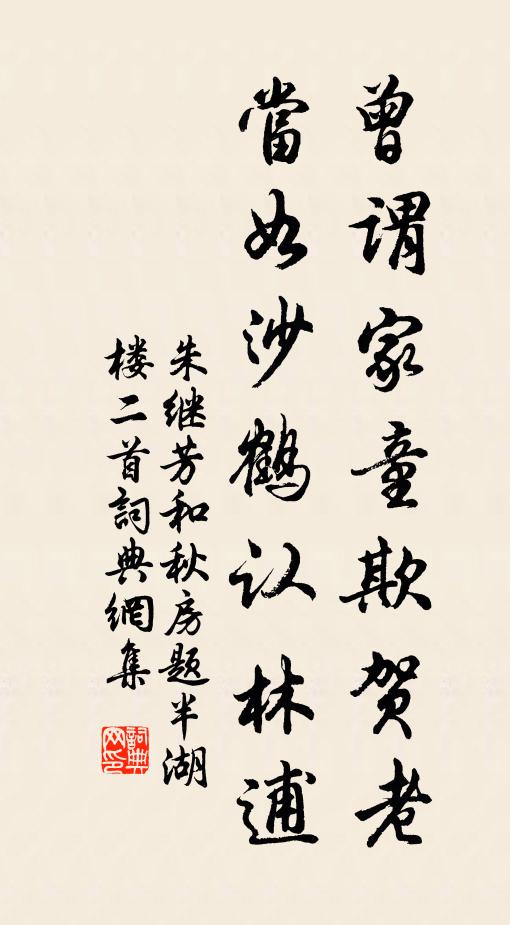 曾谓家童欺贺老
當如沙鹤认林逋
朱继芳和秋房题半湖
楼二首詞典網集
詞典
网印